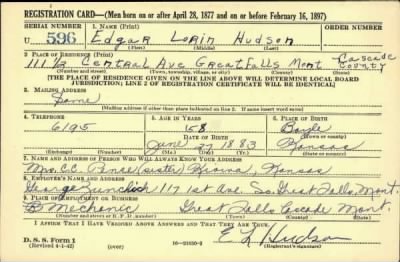 REGISTRATION CARD—(Men born on or after April 28, 1877 and on or before February 16, 1897)
SERIAL NUMBER 1. NAME (Print) ORDER NUMBER
U 596 Edgar Lorin Hudson
(First) (Middle) (Last)
2. PLACE OF RESIDENCE (Print)
111 1/2 Central Ave Great Falls Mont Cascade County
(Number and street) (Town, township, village, or city) (County) (State)
[THE PLACE OF RESIDENCE GIVEN ON THE LINE ABOVE WILL DETERMINE LOCAL BOARD
JURISDICTION; LINE 2 OF REGISTRATION CERTIFICATE WILL BE IDENTICAL]
3. MAILING ADDRESS
Same
[Mailing address if other than place indicated on line 2. If same insert word same]
4. TELEPHONE 5. AGE IN YEARS 6. PLACE OF BIRTH
6195 58
DATE OF BIRTH (Town or county)
June 27 1883 Kansas
(Exchange) (Number) (Mo.) (Day) (Yr.) (State or country)
7. NAME AND ADDRESS OF PERSON WHO WILL ALWAYS KNOW YOUR ADDRESS
Mrs. C.C. (sister) Kansas
8. EMPLOYER'S NAME AND ADDRESS
George 117 1st Ave. So. Great Falls, Mont.
9. PLACE OF EMPLOYMENT OR BUSINESS
Mechanic Great Falls Cascade Mont.
(Number and street or R. F. D. number) (Town) (County) (State)
I AFFIRM THAT I HAVE VERIFIED ABOVE ANSWERS AND THAT THEY ARE TRUE.
D. S. S. Form 1
(Revised 4-1-42) (over) 16—21630-2
E L Hudson
(Registrant's signature)